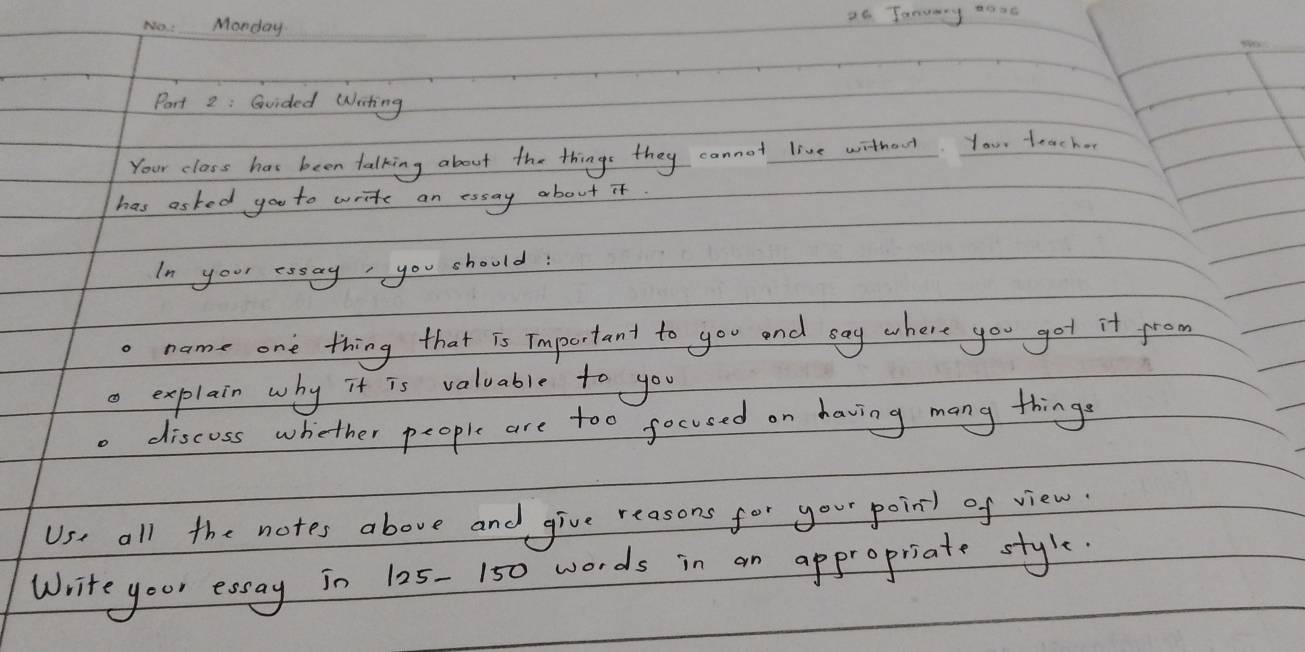 No: Monday
26 January 2026
Part 2: Guided Writing
Your class has been talking about the things they cannot live without. Your teacher
has asked you to write an essay about it.
In your essay, you should:
o name one thing that is important to you and say where you got it from
o explain why it is valuable to you
o discuss whether people are too focused on having many things
Use all the notes above and give reasons for your point of view.
Write your essay in 125-150 words in an appropriate style.